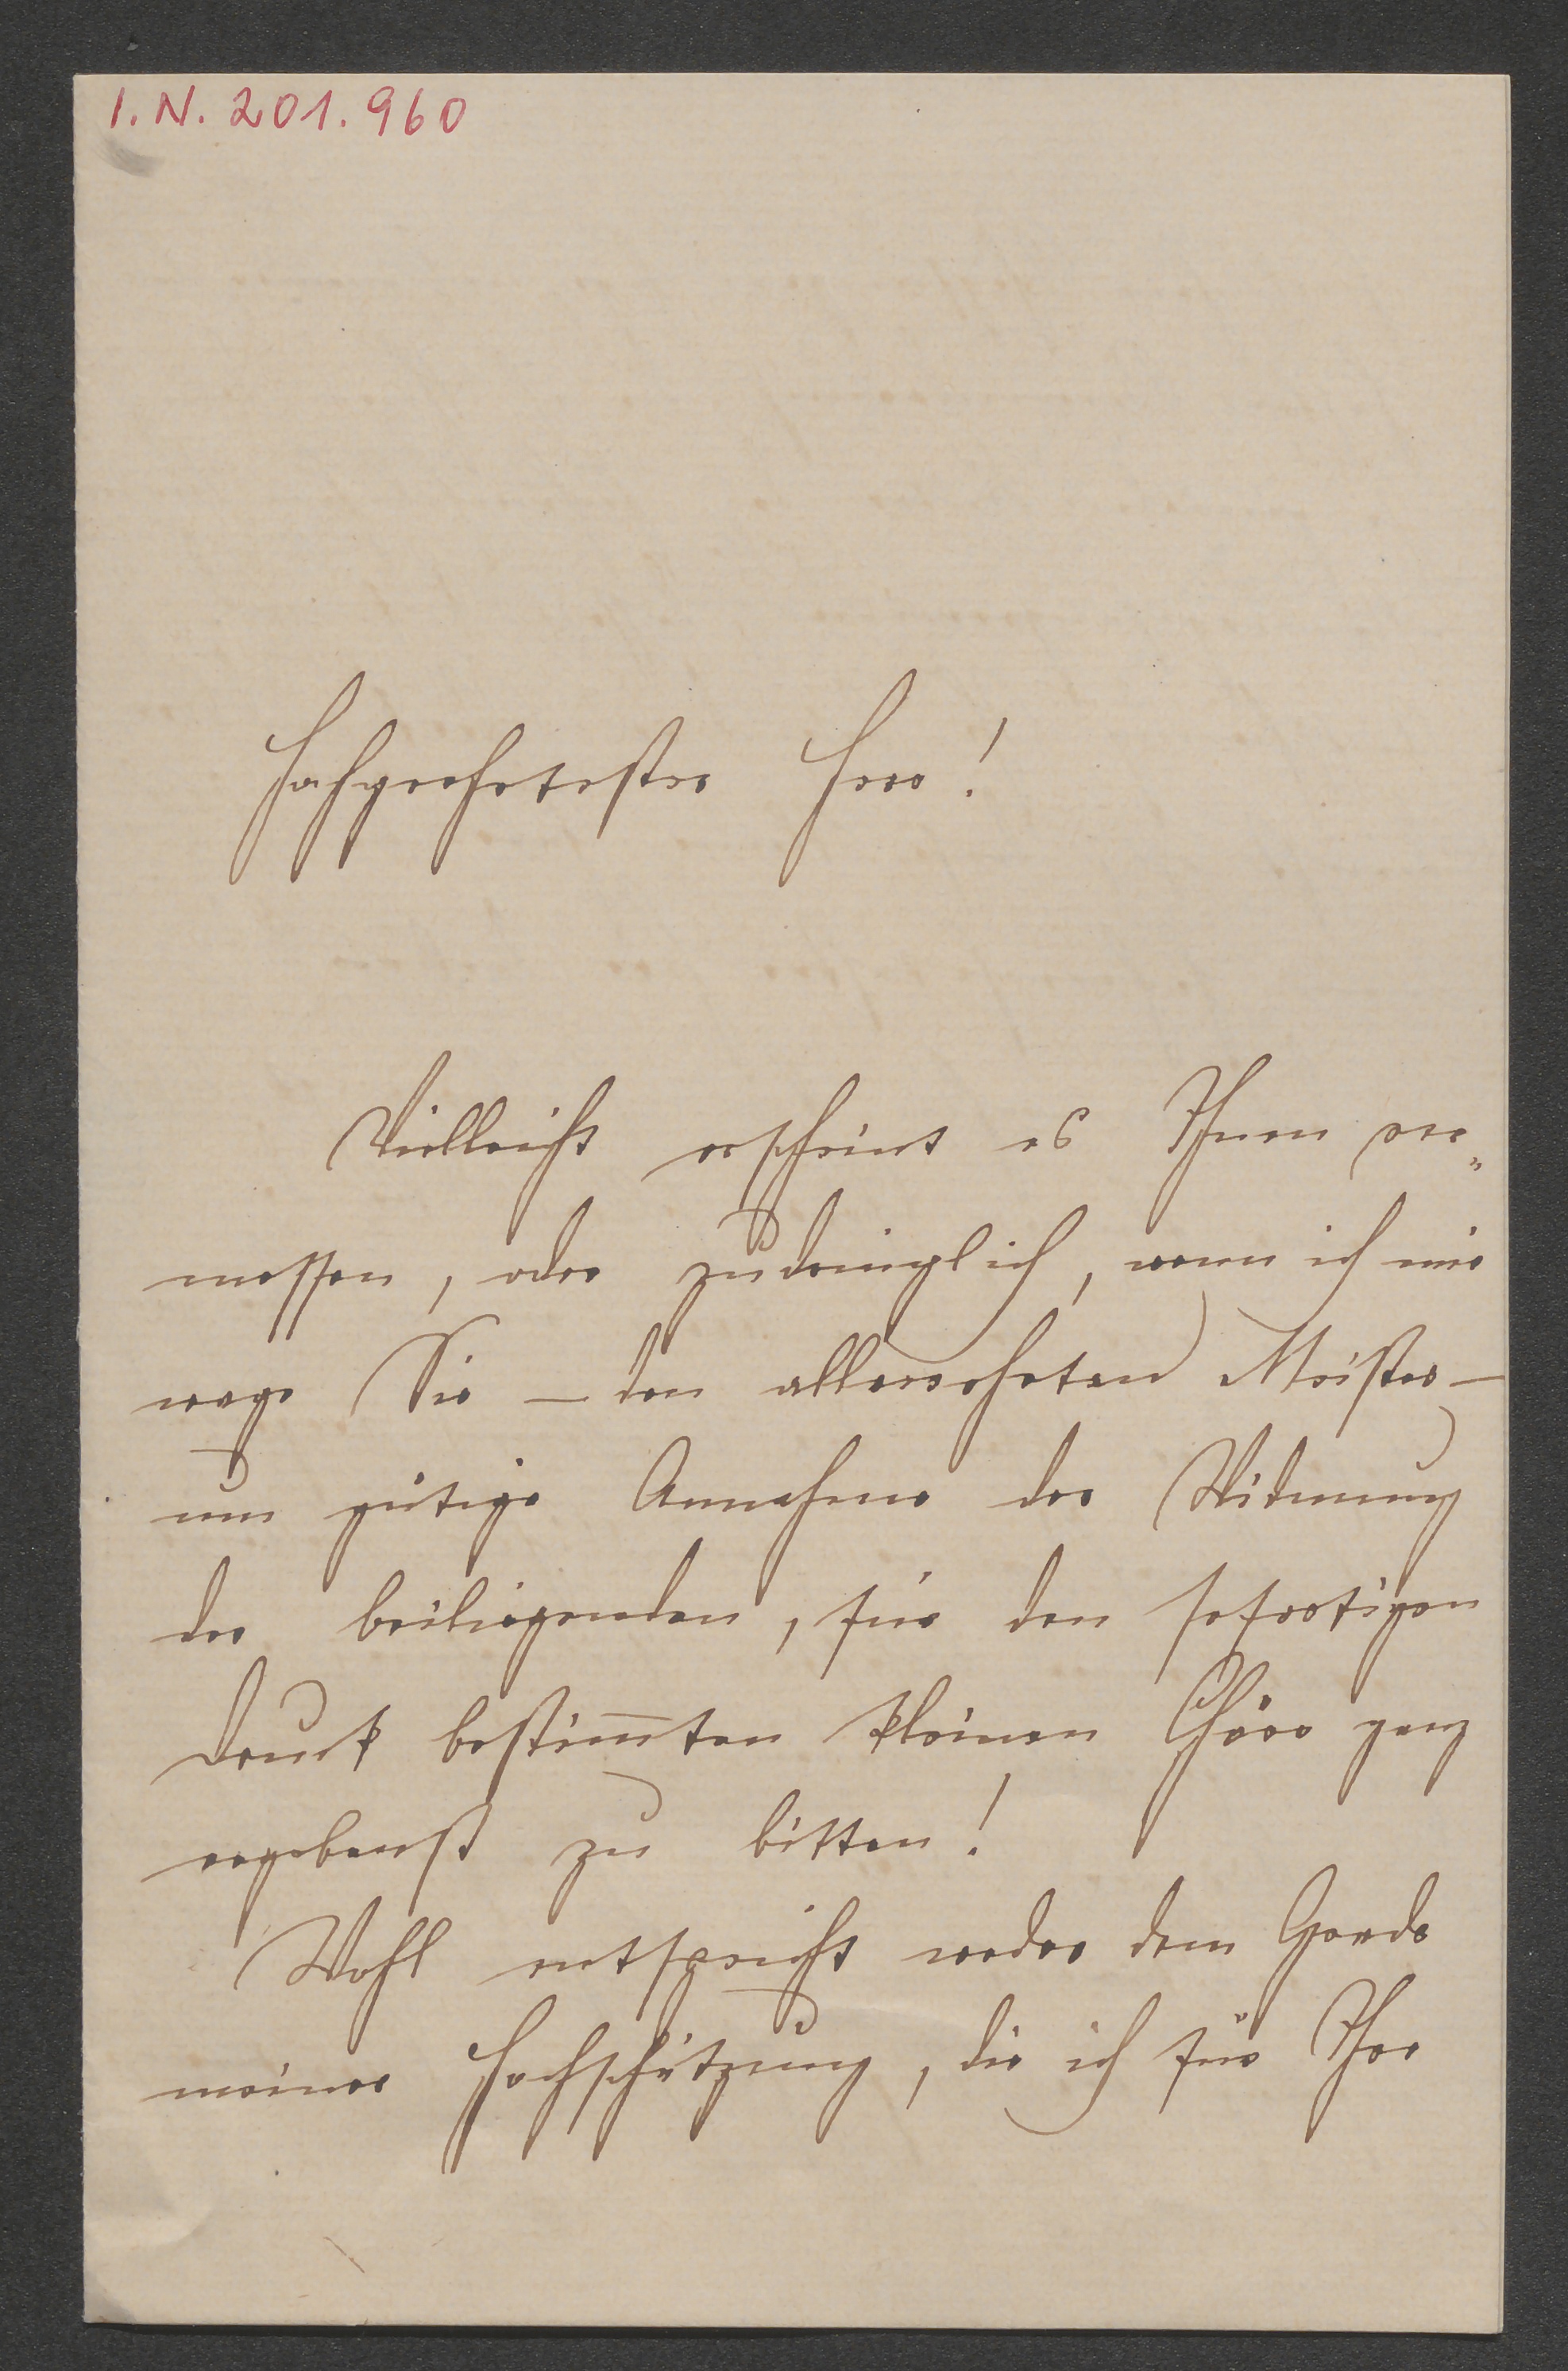 I. N. 201.960
Hochgeehrtester Herr!
Vielleicht erscheint es Ihnen ver„
messen, oder zudringlich, wenn ich mir
wage Sie – den allverehrten Meister –
um gütige Annahme der Widmung
der beiliegenden, für den sofortigen
Druck bestim̅ten kleinen Chöre ganz
ergebenst zu bitten!
Wohl entspricht weder dem Grade
meiner Hochschätzung, die ich für Ihre